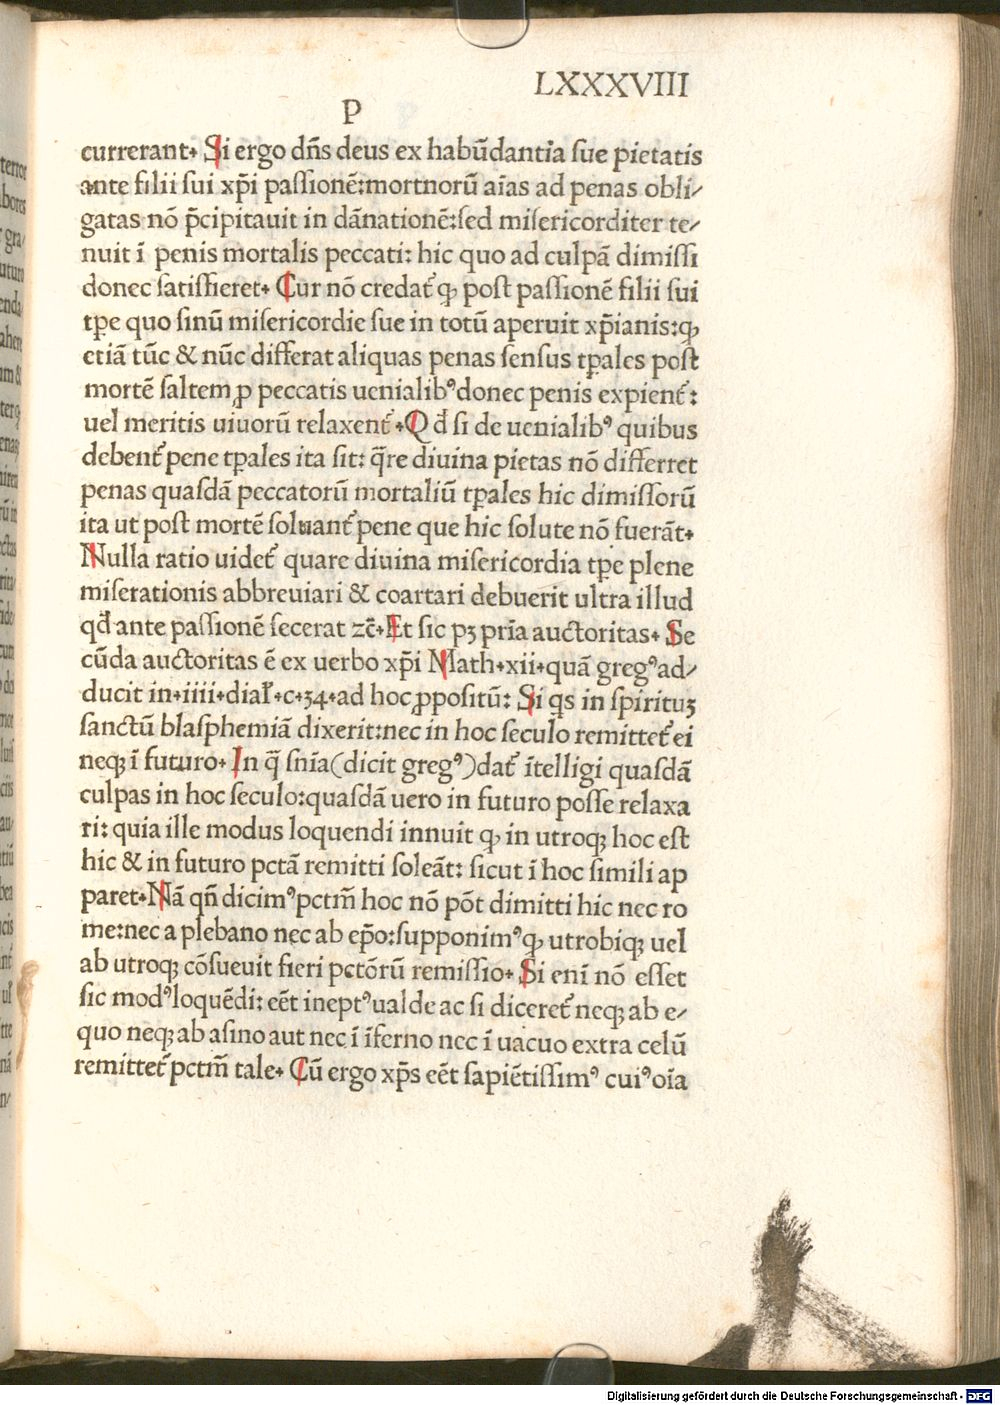 LXXXVIII
P
currerant. Si ergo dn̄s deus ex habūdantia ſue pietatis
ante filii ſui xp̄i paſſionē:mortnorū aīas ad penas obli/
gatas nō p̄cipitauit in dānationē:ſed miſericorditer te/
nuit ī penis mortalis peccati: hic quo ad culpā dimiſſi
donec ſatiſfieret. Cur nō credat᷑ ꝙ poſt paſſionē filii ſui
tꝑe quo ſinū miſericordie ſue in totū aperuit xp̄ianis:ꝙ
etiā tūc & nūc differat aliquas penas ſenſus tꝑales poſt
mortē ſaltem ꝓ peccatis uenialibꝰ donec penis expient᷑:
uel meritis uiuorū relaxent᷑. Qđ ſi de uenialibꝰ quibus
debent᷑ pene tꝑales ita ſit: q̄re diuina pietas nō differret
penas quaſdā peccatorū mortaliū tꝑales hic dimiſſorū
ita ut poſt mortē ſoluant᷑ pene que hic ſolute nō fuerāt.
Nulla ratio uidet᷑ quare diuina miſericordia tꝑe plene
miſerationis abbreuiari & coartari debuerit ultra illud
qđ ante paſſionē fecerat zc̄. Et ſic pꝫ pria̅ auctoritas. Se
cūda auctoritas ē ex uerbo xp̄i Math.xii.quā gregꝰ ad/
ducit in.iiii.dial̄.c.34.ad hoc ꝓpoſitū: Si qs in ſpirituꝫ
ſanctū blaſphemiā dixerit:nec in hoc ſeculo remittet᷑ ei
neqꝫ ī futuro. In q̄ ſn̄ia(dicit gregꝰ)dat᷑ ītelligi quaſdā
culpas in hoc ſeculo:quaſdā uero in futuro poſſe relaxa
ri: quia ille modus loquendi innuit ꝙ in utroqꝫ hoc eſt
hic & in futuro pctā remitti ſoleāt: ſicut ī hoc ſimili ap
paret. Nā qn̄ dicimꝰ pctm̄ hoc nō pōt dimitti hic nec ro
me:nec a plebano nec ab ep̄o:ſupponimꝰ ꝙ utrobiqꝫ uel
ab utroqꝫ cōſueuit fieri pctōrū remiſſio. Si enī nō eſſet
ſic modꝰ loquēdi: eēt ineptꝰ ualde ac ſi diceret᷑ neqꝫ ab e/
quo neqꝫ ab aſino aut nec ī īferno nec ī uacuo extra celū
remittet᷑ pctm̄ tale. Cū ergo xp̄s eēt ſapiētiſſimꝰ cuiꝰ oīa
Digitalisierung gefördert durch die Deutsche Forschungsgemeinschaft - DFG